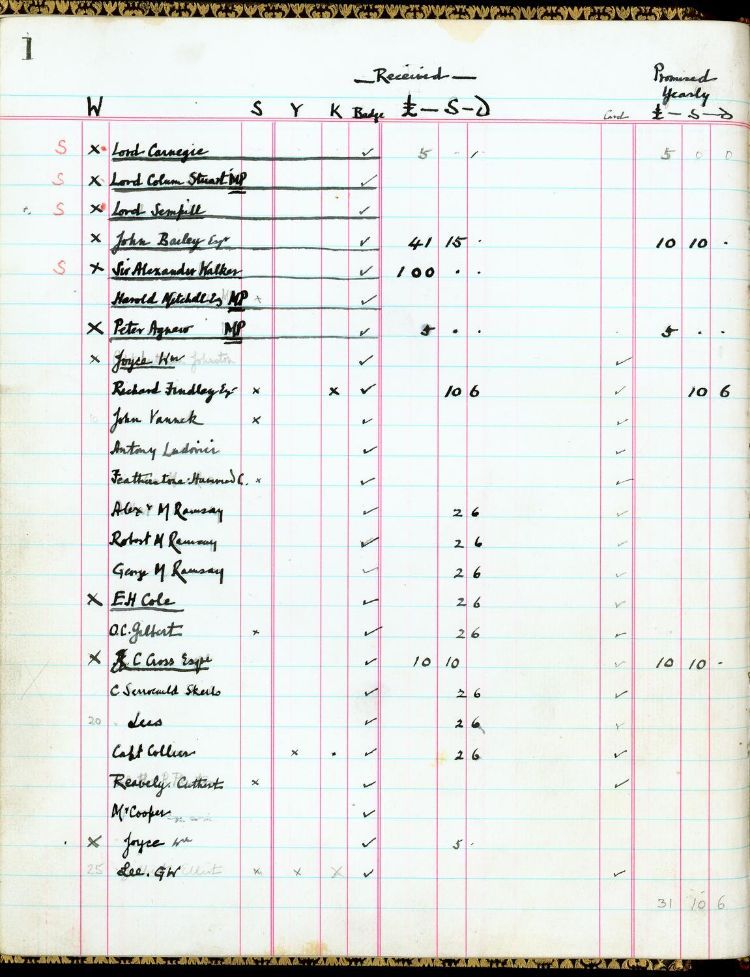 1
Received
Promised
Yearly
W S Y K Badge £ - S - D Card £ - S - D
S x Lord Carnegie ✓ 5 - 1 5 0 0
S x Lord Colum Stuart MP ✓
S x Lord Sempill ✓
x John Bailey Esqr ✓ 41 15 · 10 10 ·
S x Sir Alexander Walker ✓ 100 · ·
Harold Mitchell Esq MP x ✓
x Peter Agnew MP ✓ 5 · · 5 · ·
x Joyce Wm Johnston ✓ ✓
Richard Findlay Esqr x x ✓ 10 6 ✓ 10 6
John Vanneck x ✓ ✓
Antony Ludovici ✓ ✓
Featherstone-Hammond C. x ✓ ✓
Alexr M Ramsay ✓ 2 6 ✓
Robert M Ramsay ✓ 2 6 ✓
George M Ramsay ✓ 2 6 ✓
x E H Cole ✓ 2 6 ✓
O.C. Gilbert x ✓ 2 6 ✓
x C Cross Esqre ✓ 10 10 ✓ 10 10 -
C ✓ 2 6 ✓
20 Lees ✓ 2 6 ✓
Capt Collier x · ✓ 2 6 ✓
Cuthbert x ✓ ✓
Mr Cooper ✓
x Joyce Wm ✓ 5 -
25 Lee. GW x x x ✓ ✓
31 10 6